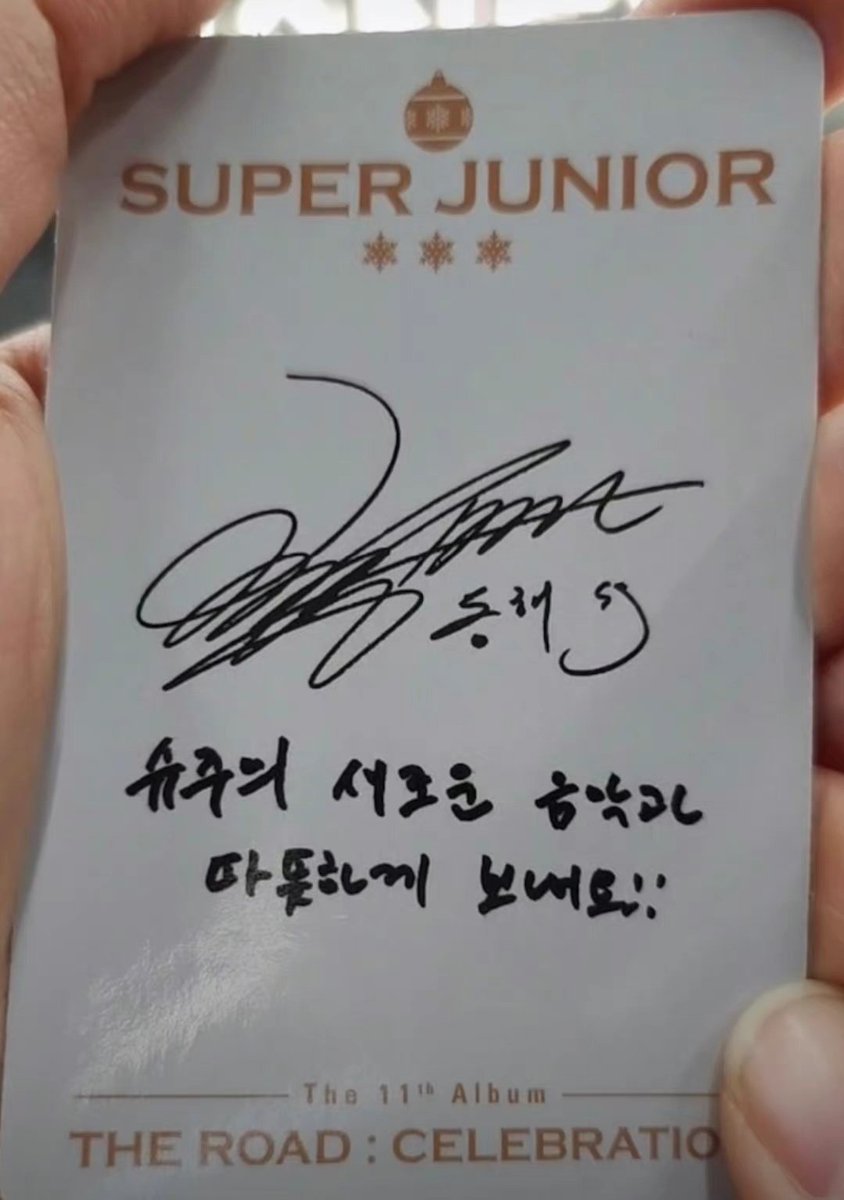 SUPER JUNIOR
동해
슈주의 새로운 음악과
따뜻하게 보내요!!
The 11th Album
THE ROAD : CELEBRATIO